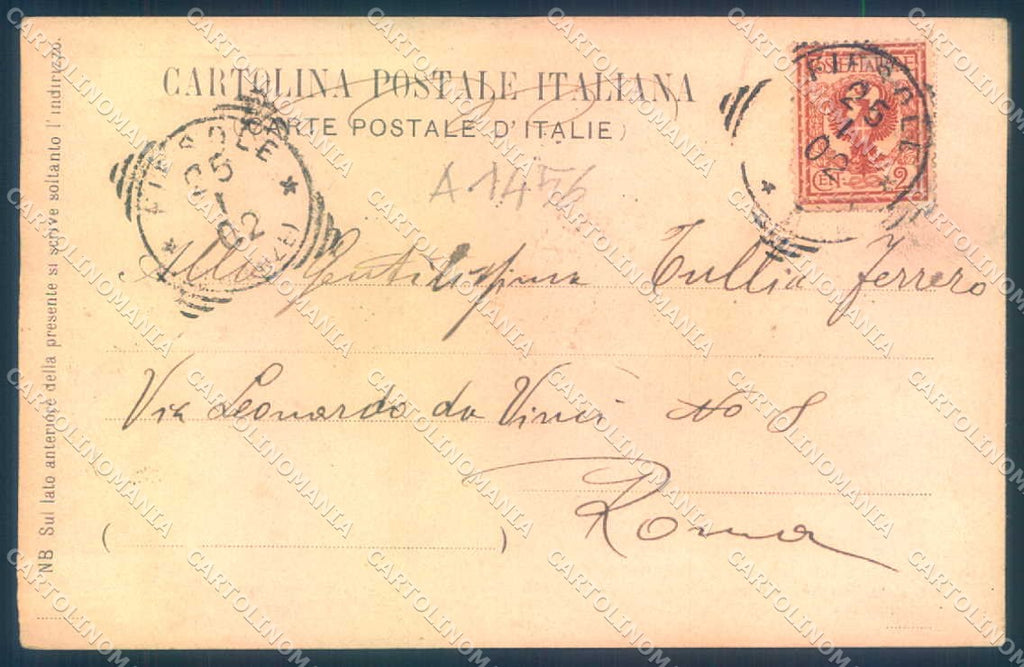 CARTOLINA POSTALE ITALIANA
(CARTE POSTALE D'ITALIE)
FIESOLE
25
1
02
FIESOLE
25
1
02
2
A1456
Alla Gentilissima Tullia Ferrero
Via Leonardo da Vinci No 8
Roma
( )
NB Sul lato anteriore della presente si scrive soltanto l'indirizzo.
CARTOLINOMANIA